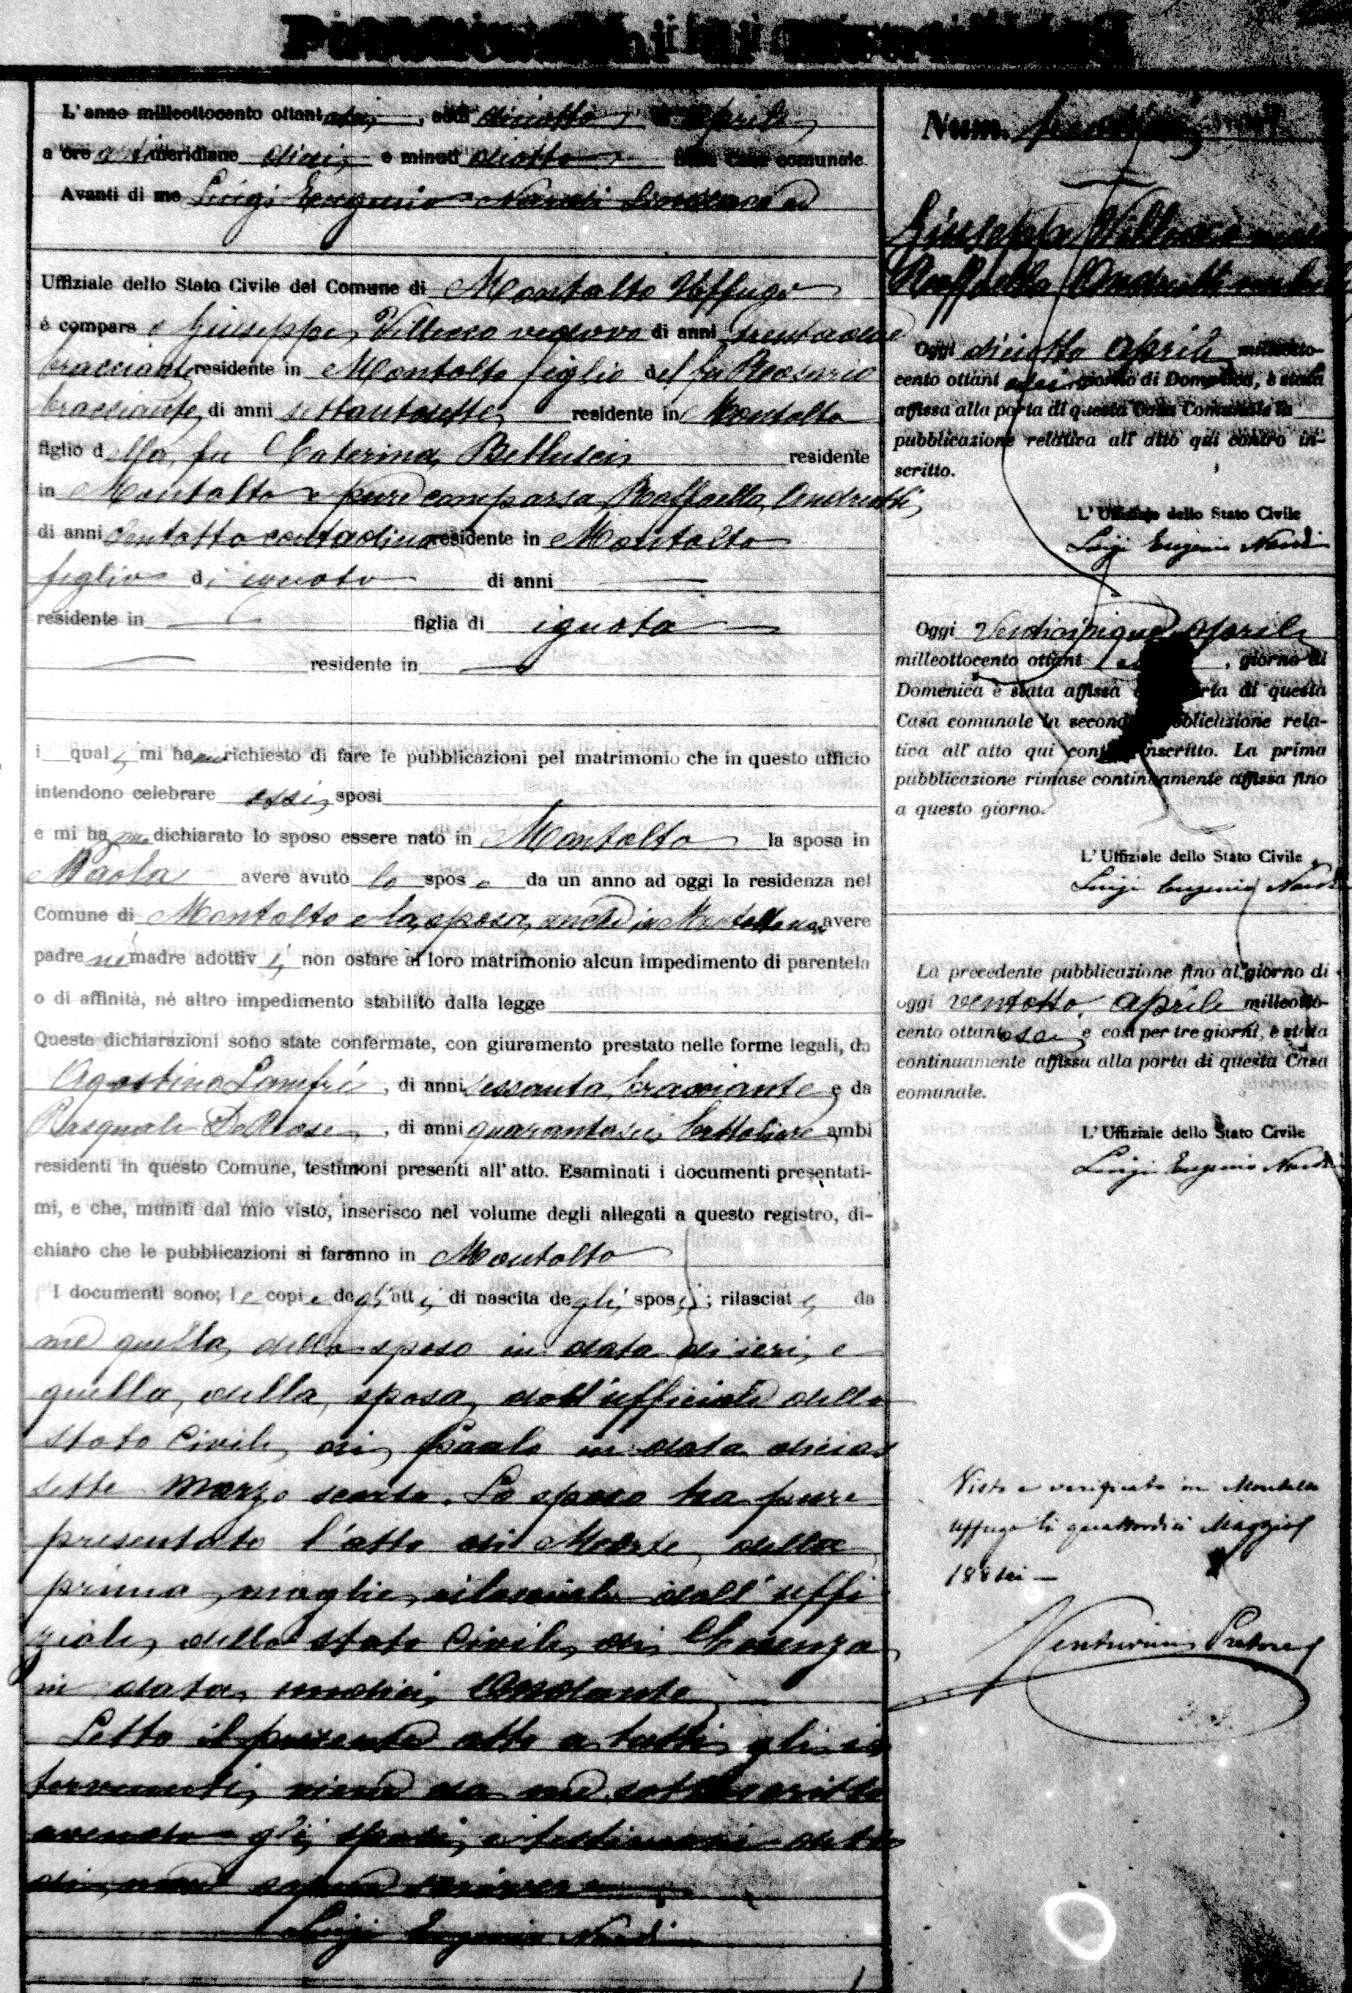 Pubblicazioni di Matrimonio
L'anno milleottocento ottantasei, addì diciotto di Aprile
a ore antimeridiane dieci e minuti diotto nella Casa comunale.
Avanti di me Luigi Eugenio Nardi Sindaco ed
Uffiziale dello Stato Civile del Comune di Montalto Uffugo
è comparso Giuseppe Villecco vedovo di anni trentadue
bracciante residente in Montalto figlio del fu Rosario
bracciante, di anni settantasette residente in Montalto
figlio della fu Caterina Belluscio residente
in Montalto e pure comparsa Raffaella Andreotti
di anni ventotto contadina residente in Montalto
figlia di ignoto di anni
residente in figlia di ignota
residente in
i quali mi hanno richiesto di fare le pubblicazioni pel matrimonio che in questo ufficio
intendono celebrare essi sposi
e mi hanno dichiarato lo sposo essere nato in Montalto la sposa in
Paola avere avuto lo sposo da un anno ad oggi la residenza nel
Comune di Montalto e la sposa anche in Montalto non avere
padre nè madre adottivi, non ostare al loro matrimonio alcun impedimento di parentela
o di affinità, nè altro impedimento stabilito dalla legge
Queste dichiarazioni sono state confermate, con giuramento prestato nelle forme legali, da
Agostino Lanfré, di anni sessanta bracciante e da
Pasquale De Rose, di anni quarantasei bottoliere ambi
residenti in questo Comune, testimoni presenti all'atto. Esaminati i documenti presentati-
mi, e che, muniti dal mio visto, inserisco nel volume degli allegati a questo registro, di-
chiaro che le pubblicazioni si faranno in Montalto
I documenti sono; le copie degli atti di nascita degli sposi; rilasciate da
me quella dello sposo in data di ieri, e
quella della sposa dall'ufficiale dello
stato Civile di Paola in data dicias
sette Marzo scorso. Lo sposo ha pure
presentato l'atto di Morte della
prima moglie rilasciato dall'uffi
ziale dello stato Civile di Cosenza
in data undici Andante
Letto il presente atto a tutti gli in
tervenuti, viene da me sottoscritto
avendo gli sposi, e testimoni detto
di non sapere scrivere
Luigi Eugenio Nardi
Num.
Giuseppe Villecco
Raffaella Andreotti
Oggi diciotto Aprile milleotto-
cento ottantasei giorno di Domenica, è stata
affissa alla porta di questa Casa Comunale la
pubblicazione relativa all'atto qui contro in-
scritto.
L'Uffiziale dello Stato Civile
Luigi Eugenio Nardi
Oggi Venticinque Aprile
milleottocento ottant , giorno di
Domenica è stata affissa alla porta di questa
Casa comunale la seconda pubblicazione rela-
tiva all'atto qui contro inscritto. La prima
pubblicazione rimase continuamente affissa fino
a questo giorno.
L'Uffiziale dello Stato Civile
Luigi Eugenio Nardi
La precedente pubblicazione fino al giorno di
oggi ventotto Aprile milleotto-
cento ottantasei e così per tre giorni, è stata
continuamente affissa alla porta di questa Casa
comunale.
L'Uffiziale dello Stato Civile
Luigi Eugenio Nardi
Visto e verificato in Montalto
Uffugo li quattordici Maggio
188sei
Venturini Pretore